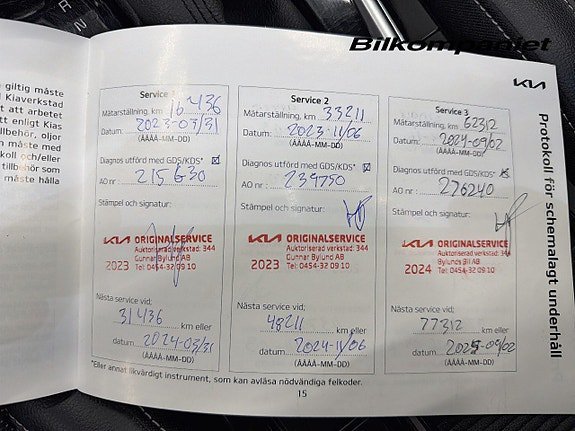 R
2
Bilkompaniet
giltig måste
Kiaverkstad
t att arbetet
att enligt Kias
llbehör, oljor
n måste med
koll och/eller
tillbehör som
måste hålla
KIA
Protokoll för schemalagt underhåll
Service 1
Mätarställning, km 16436
Datum: 2023-03/31
(ÅÅÅÅ-MM-DD)
Diagnos utförd med GDS/KDS*
AO nr: 215630
Stämpel och signatur:
KIA ORIGINALSERVICE
Auktoriserad verkstad: 344
Gunnar Bylund AB
2023 Tel: 0454-32 09 10
Nästa service vid;
31436 km eller
datum 2024-03/31
(ÅÅÅÅ-MM-DD)
Service 2
Mätarställning, km 33211
Datum: 2023-11/06
(ÅÅÅÅ-MM-DD)
Diagnos utförd med GDS/KDS*
AO nr: 239750
Stämpel och signatur:
KIA ORIGINALSERVICE
Auktoriserad verkstad: 344
Gunnar Bylund AB
2023 Tel: 0454-32 09 10
Nästa service vid;
48211 km eller
datum 2024-11/06
(ÅÅÅÅ-MM-DD)
Service 3
Mätarställning, km 62312
Datum: 2024-09/02
(ÅÅÅÅ-MM-DD)
Diagnos utförd med GDS/KDS*
AO nr: 276240
Stämpel och signatur:
KIA ORIGINALSERVICE
Auktoriserad verkstad: 344
Bylunds Bil AB
2024 Tel: 0454-32 09 10
Nästa service vid;
77312 km eller
datum 2025-09/02
(ÅÅÅÅ-MM-DD)
*Eller annat likvärdigt instrument, som kan avläsa nödvändiga felkoder.
15